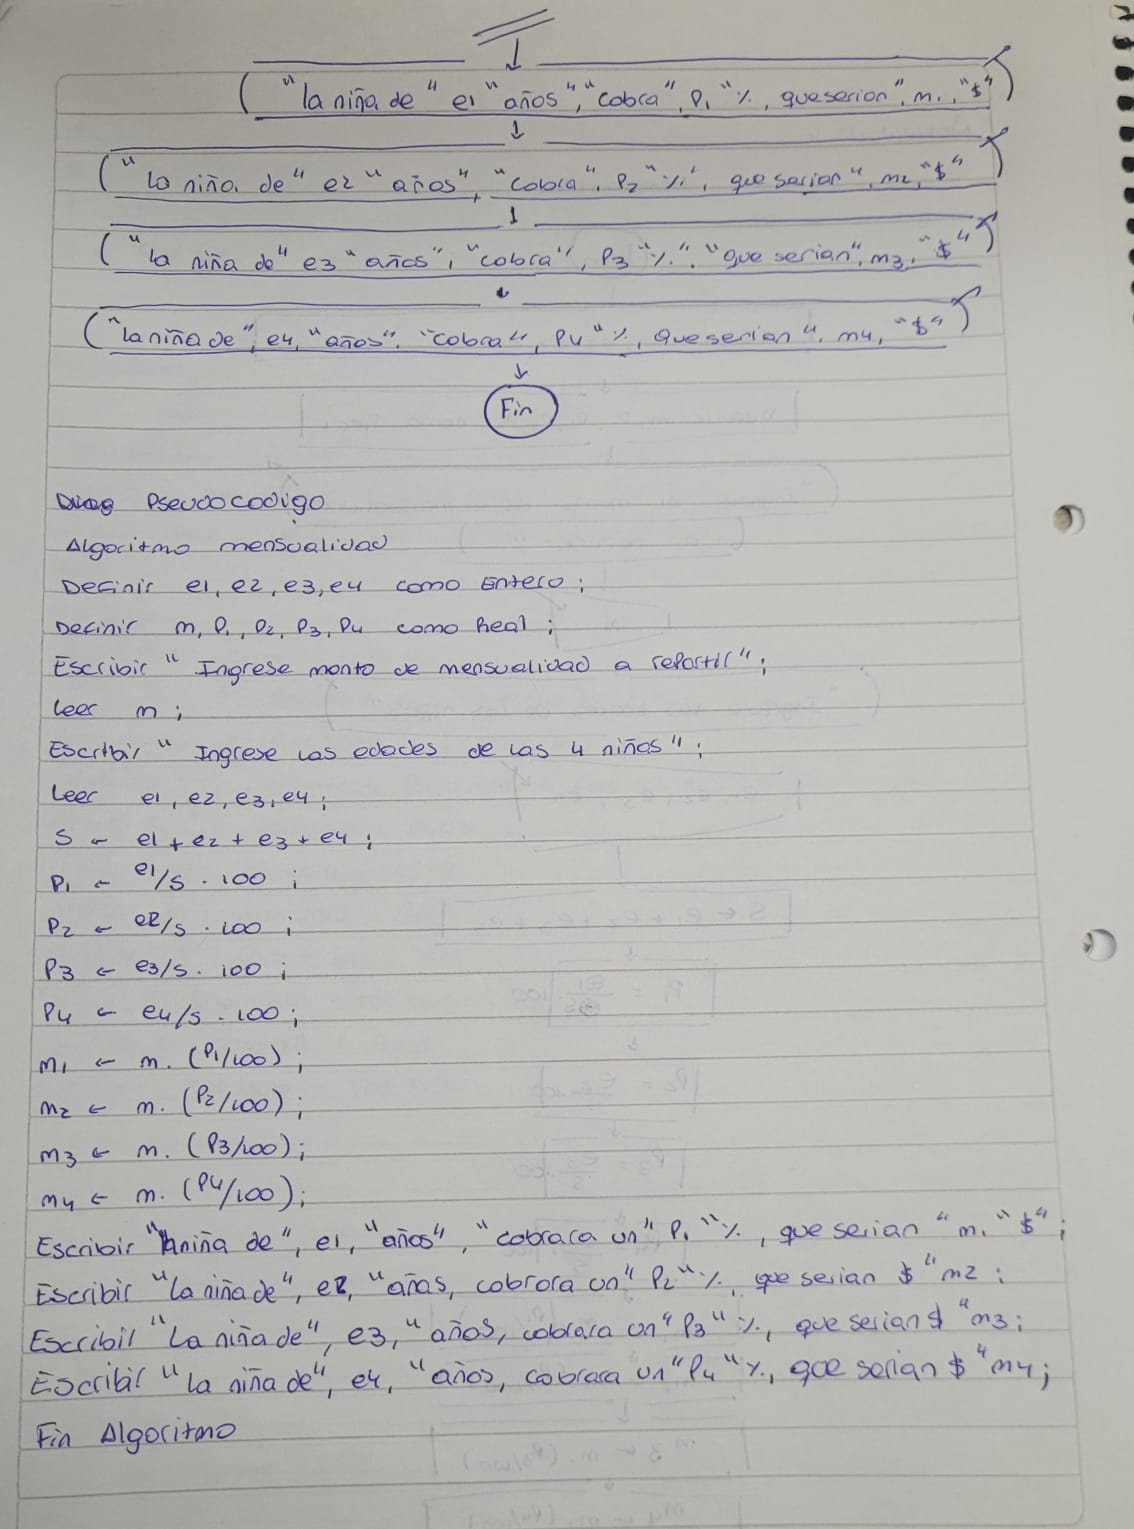 "la niña de" e1 "años", "cobra", P1 "%, que serian", m1, "$"
"La niña de" e2 "años", "cobra", P2 "%", que serian", m2, "$"
"la niña de" e3 "años", "cobra", P3 "%", "que serian", m3, "$"
"la niña de", e4, "años", "cobra", P4 "%, que serian", m4, "$"
Fin
Pseudocodigo
Algoritmo mensualidad
Definir e1, e2, e3, e4 como Entero;
Definir m, P1, P2, P3, P4 como Real;
Escribir "Ingrese monto de mensualidad a repartir";
Leer m;
Escribir "Ingrese las edades de las 4 niñas";
Leer e1, e2, e3, e4;
S ← e1 + e2 + e3 + e4;
P1 ← e1/S . 100 ;
P2 ← e2/s . 100 ;
P3 ← e3/s . 100 ;
P4 ← e4/s . 100 ;
m1 ← m . (P1/100) ;
m2 ← m . (P2/100) ;
m3 ← m . (P3/100) ;
m4 ← m . (P4/100) ;
Escribir "la niña de", e1, "años", "cobrara un" P1 "%, que serian" m1 "$" ;
Escribir "la niña de", e2, "años, cobrara un" P2 "%, que serian $" m2 ;
Escribir "La niña de", e3, "años, cobrara un" P3 "%, que serian $" m3 ;
Escribir "la niña de", e4, "años, cobrara un" P4 "%, que serian $" m4 ;
Fin Algoritmo